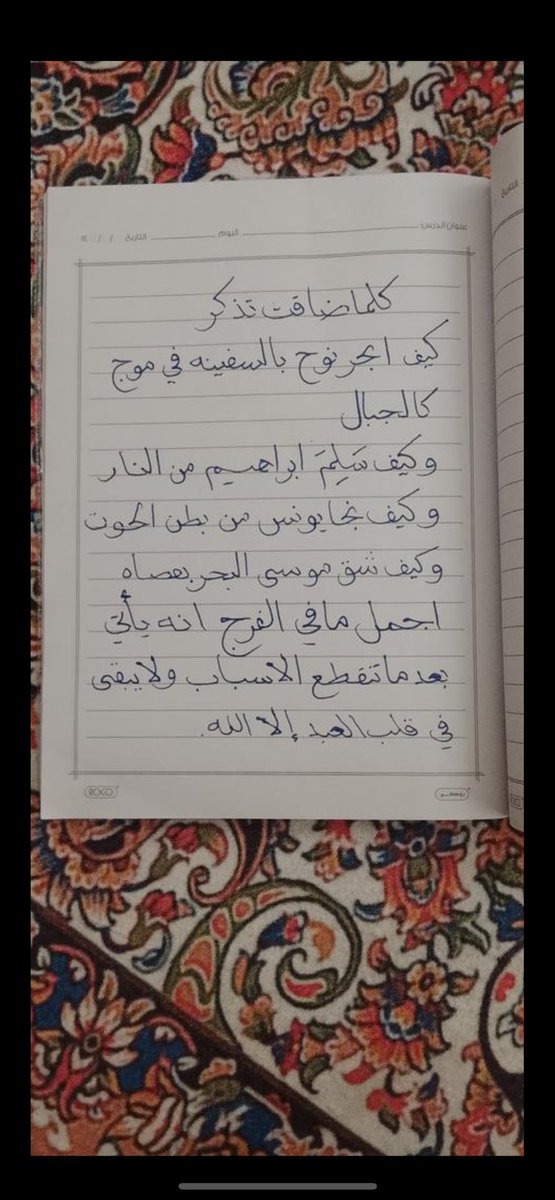 عنوان الدرس اليوم التاريخ / / ١٤
كلما ضاقت تذكر
كيف ابحر نوح بالسفينه في موج
كالجبال
وكيف سَلِمَ ابراهيم من النار
وكيف نجا يونس من بطن الحوت
وكيف شق موسى البحر بعصاه
اجمل مافي الفرج انه يأتي
بعد ما تنقطع الاسباب ولا يبقى
في قلب العبد إلا الله.
ROCO روكو